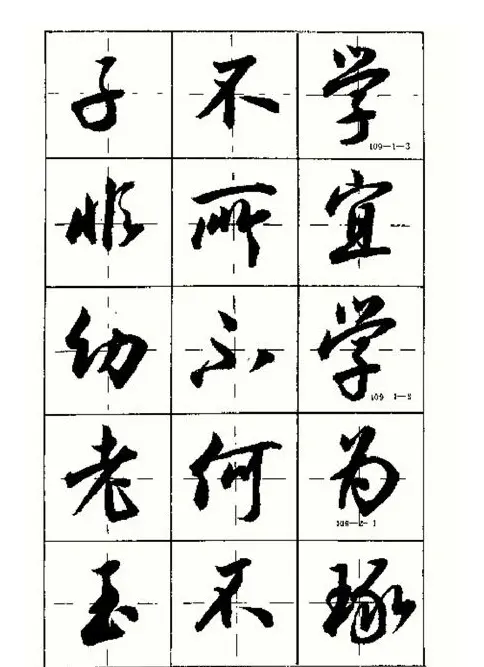 子不学
109-1-3
非所宜
幼不学
109 1-2
老何为
108-2-1
玉不琢